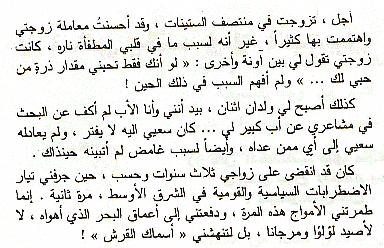 أجل ، تزوجت في منتصف الستينات ، وقد أحسنتُ معاملة زوجتي
واهتممت بها كثيراً ، غير أنه لسبب ما في قلبي المطفأة ناره ، كانت
زوجتي تقول لي بين آونة وأخرى : « لو أنك فقط تحبني مقدار ذرةٍ من
حبي لك ... » ولم أفهم السبب في ذلك الحين !
كذلك أصبح لي ولدان اثنان ، بيد أنني وأنا الأب لم أكف عن البحث
في مشاعري عن أب كبير لي ... كان سعيي اليه لا يفتر ، ولم يعادله
سعيي إلى أي ممن عداه ، وأيضاً لسبب غامض لم أتبينه حينذاك .
كان قد انقضى على زواجي ثلاث سنوات وحسب ، حين جرفني تيار
الاضطرابات السياسية والقومية في الشرق الأوسط ، مرة ثانية . إنما
طمرتني الأمواج هذه المرة ، ودفعتني إلى أعماق البحر الذي أهواه ، لا
لأصيد لؤلؤا ومرجانا ، بل لتنهشني « أسماك القرش » !